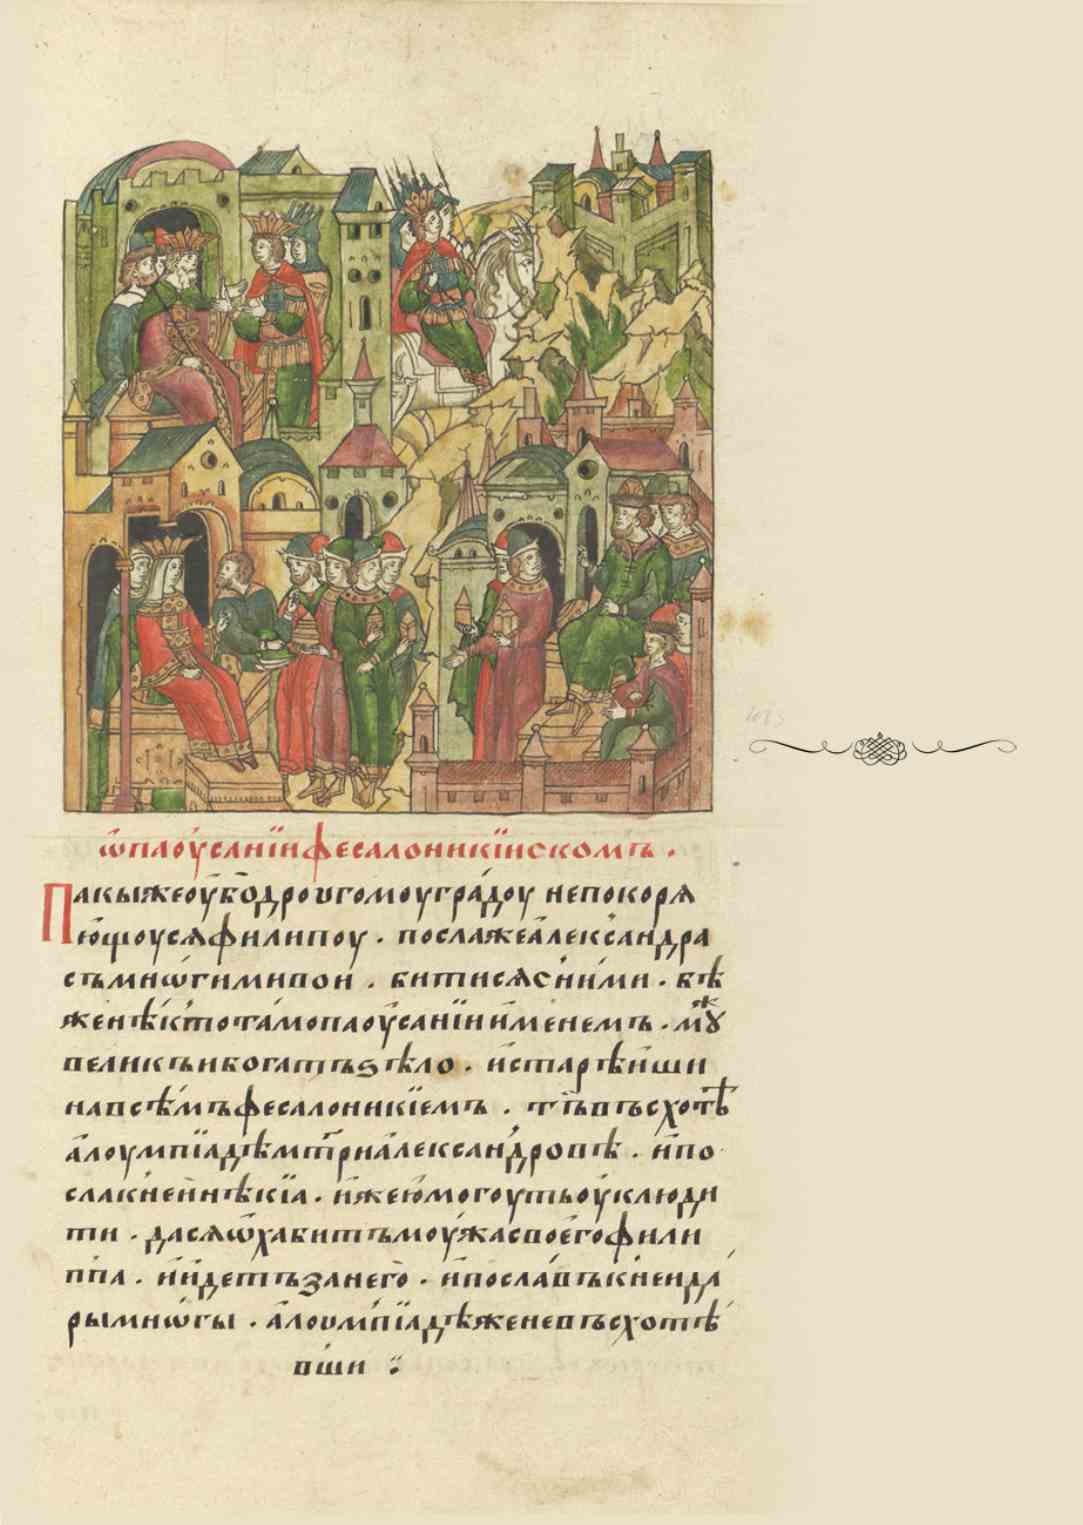 ѿ паѵсанїи фесалоникїискомъ .
Пакы же оубо дроугомоу градоу не покоря
ющоуся филипоу . посла же александра
съ мнѡгими вои . битися с ними . бѣ
же нѣкто тамо паоусанїи именемъ . мꙋж
великъ и богатъ ѕѣло . и старѣиши
на всѣмъ фесалоникїемъ . тъ въсхотѣ
алоумпїадѣ мт҃ри александровѣ . и по
сла к неи нѣкїа . иже ю могоуть оуклюди
ти . да ся ѿхабитъ моужа своего фили
ппа . и идетъ за него . и пославъ к неи да
ры мнѡгы . алоумпїадѣ же не въсхотѣ
вши